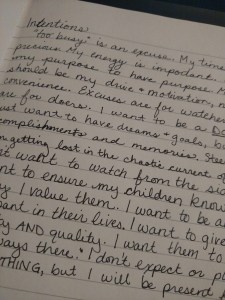 Intentions:
"too busy" is an excuse. My time
precious. My energy is important.
my purpose to have purpose. M
should be my drive + motivation, n
convenience. Excuses are for watcher
are for doers. I want to be a DO
just want to have dreams + goals, bu
complishments and memories. Stee
m getting lost in the chaotic current of
't want to watch from the sid
nt to ensure my children know
y I value them. I want to be a
pant in their lives. I want to give
ty AND quality. I want them to
ways there. I don't expect or p
THING, but I will be present